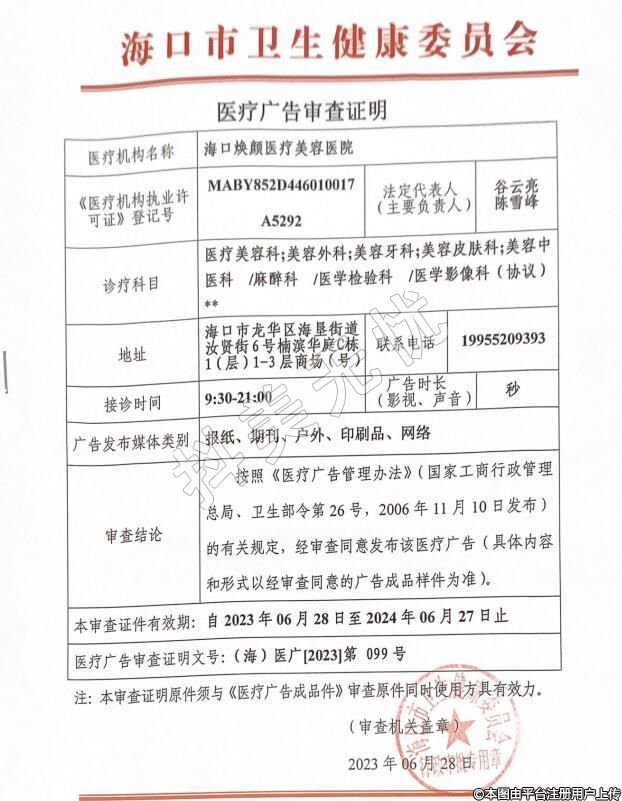 海口市卫生健康委员会
医疗广告审查证明
医疗机构名称
海口焕颜医疗美容医院
《医疗机构执业许
可证》登记号
MABY852D446010017
A5292
法定代表人
（主要负责人）
谷云亮
陈雪峰
诊疗科目
医疗美容科;美容外科;美容牙科;美容皮肤科;美容中
医科 /麻醉科 /医学检验科 /医学影像科（协议）
**
地址
海口市龙华区海垦街道
汝贤街6号楠滨华庭C栋
1(层)1-3层商场(号)
联系电话
19955209393
接诊时间
9:30-21:00
广告时长
（影视、声音）
秒
广告发布媒体类别
报纸、期刊、户外、印刷品、网络
审查结论
按照《医疗广告管理办法》（国家工商行政管理
总局、卫生部令第26号，2006年11月10日发布）
的有关规定，经审查同意发布该医疗广告（具体内容
和形式以经审查同意的广告成品样件为准）。
本审查证件有效期：自2023年06月28日至2024年06月27日止
医疗广告审查证明文号：（海）医广[2023]第 099号
注：本审查证明原件须与《医疗广告成品件》审查原件同时使用方具有效力。
（审查机关盖章）
2023年06月28日
海口市卫生健康委员会
行政审批专用章
抖美无忧
©本图由平台注册用户上传